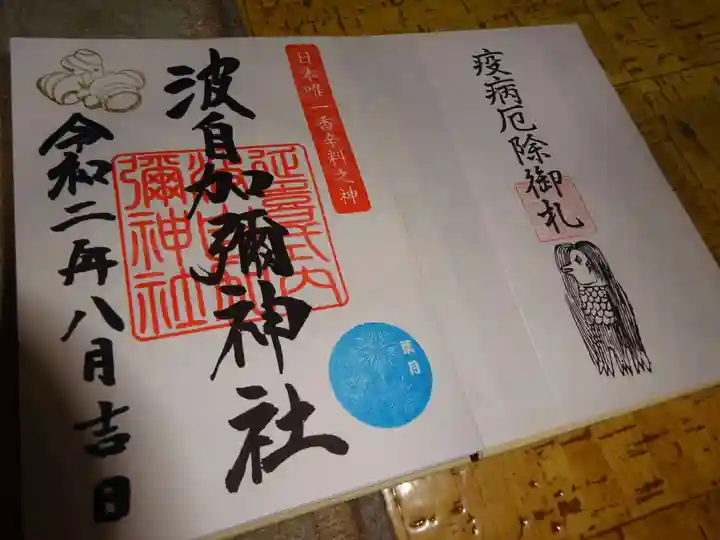 疫病厄除御札
日本唯一香辛料之神
波自加彌神社
延喜式内
彌神社
葉月
令和二年八月吉日